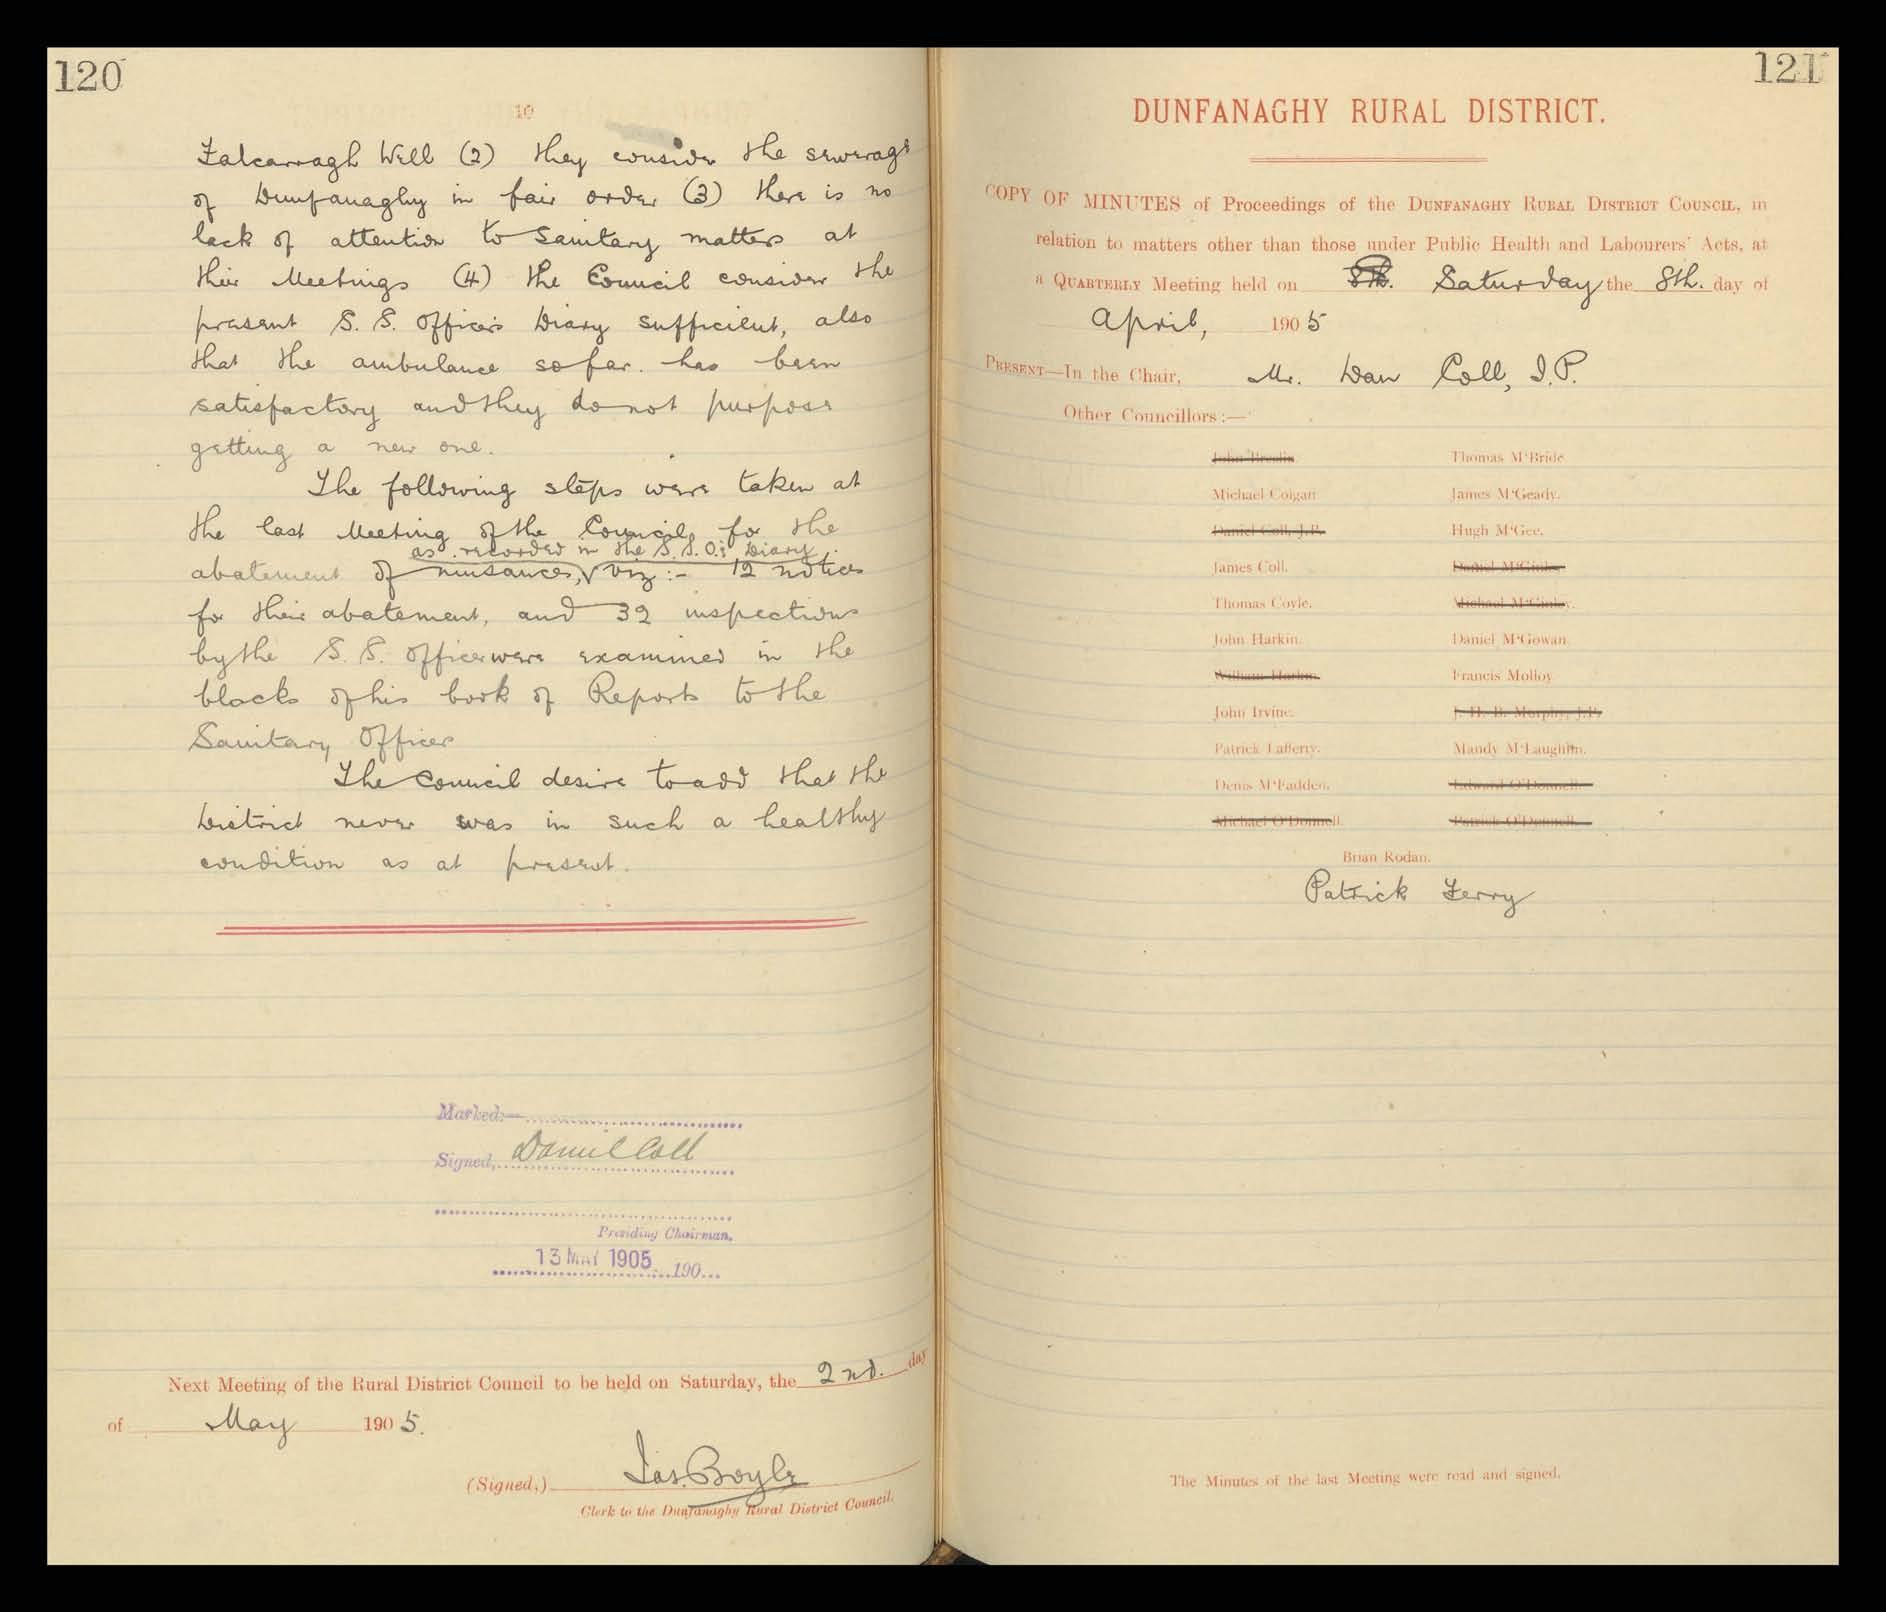 120
10
Falcarragh Well (2) they consider the sewerage
of Dunfanaghy in fair order (3) there is no
lack of attention to Sanitary matters at
their Meetings (4) the Council consider the
present S. S. Officer's Diary sufficient, also
that the ambulance so far has been
satisfactory and they do not purpose
getting a new one.
The following steps were taken at
the last Meeting of the Council, for the
as recorded in the S. S. O.'s Diary
abatement of nuisances, viz:- 12 notices
for their abatement, and 32 inspections
by the S. S. Officer were examined in the
blocks of his book of Reports to the
Sanitary Officer
The Council desire to add that the
District never was in such a healthy
condition as at present.
Marked:—
Signed, Daniel Coll
Presiding Chairman.
13 MAY 1905 190
Next Meeting of the Rural District Council to be held on Saturday, the 2nd. day
of May 1905.
(Signed,) Jas. Boyle
Clerk to the Dunfanaghy Rural District Council.
121
DUNFANAGHY RURAL DISTRICT.
COPY OF MINUTES of Proceedings of the DUNFANAGHY RURAL DISTRICT COUNCIL, in
relation to matters other than those under Public Health and Labourers' Acts, at
a QUARTERLY Meeting held on 8th. Saturday the 8th. day of
April, 1905
PRESENT—In the Chair, Mr. Dan Coll, J.P.
Other Councillors:—
John Breslin. Thomas M'Bride
Michael Colgan James M'Geady.
Daniel Coll, J.P. Hugh M'Gee.
James Coll. Daniel M'Ginley.
Thomas Coyle. Michael M'Ginley.
John Harkin. Daniel M'Gowan.
William Harkin. Francis Molloy.
John Irvine. J. H. B. Murphy, J.P.
Patrick Lafferty. Mandy M'Laughlin.
Denis M'Fadden. Edward O'Donnell.
Michael O'Donnell. Patrick O'Donnell.
Brian Rodan.
Patrick Ferry
The Minutes of the last Meeting were read and signed.